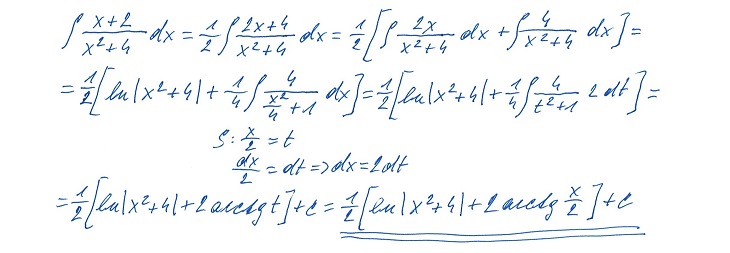 ∫ (x+2)/(x²+4) dx = 1/2 ∫ (2x+4)/(x²+4) dx = 1/2 [∫ 2x/(x²+4) dx + ∫ 4/(x²+4) dx] =
= 1/2 [ln|x²+4| + 1/4 ∫ 4/(x²/4 + 1) dx] = 1/2 [ln|x²+4| + 1/4 ∫ 4/(t²+1) 2dt] =
S: x/2 = t
dx/2 = dt => dx = 2dt
= 1/2 [ln|x²+4| + 2 arctg t] + c = 1/2 [ln|x²+4| + 2 arctg x/2] + c